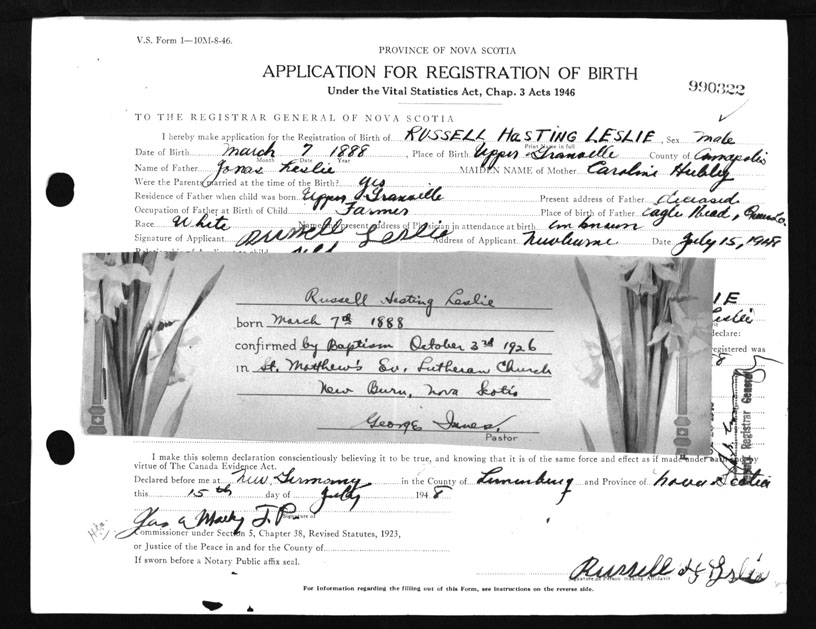 V.S. Form 1—10M-8-46.
PROVINCE OF NOVA SCOTIA
APPLICATION FOR REGISTRATION OF BIRTH
Under the Vital Statistics Act, Chap. 3 Acts 1946
990322
TO THE REGISTRAR GENERAL OF NOVA SCOTIA
I hereby make application for the Registration of Birth of RUSSELL HASTING LESLIE, Sex male
Print Name in full
Date of Birth March 7 1888, Place of Birth Upper Granville County of Annapolis
Month Date Year
Name of Father Jonas Leslie MAIDEN NAME of Mother Caroline Hubley
Were the Parents married at the time of the Birth? yes
Residence of Father when child was born Upper Granville Present address of Father deceased
Occupation of Father at Birth of Child Farmer Place of birth of Father Eagle Head,
Race White Name of present address of Physician in attendance at birth unknown
Signature of Applicant Russell Leslie Address of Applicant Newburne Date July 15, 1948
IE
Leslie
declare:
registered was
8
Russell Hasting Leslie
born March 7th 1888
confirmed by Baptism October 3rd 1926
in St. Matthew's Ev. Lutheran Church
New Burn, Nova Scotia
George Innes,
Pastor
Registrar General
I make this solemn declaration conscientiously believing it to be true, and knowing that it is of the same force and effect as if made under oath and by
virtue of The Canada Evidence Act.
Declared before me at New Germany in the County of Lunenburg and Province of Nova Scotia
this 15th day of July 1948
Jas a J.P.
Signature of
Commissioner under Section 5, Chapter 38, Revised Statutes, 1923,
or Justice of the Peace in and for the County of
If sworn before a Notary Public affix seal.
Russell H Leslie
Signature of Person making Affidavit
For Information regarding the filling out of this Form, see instructions on the reverse side.